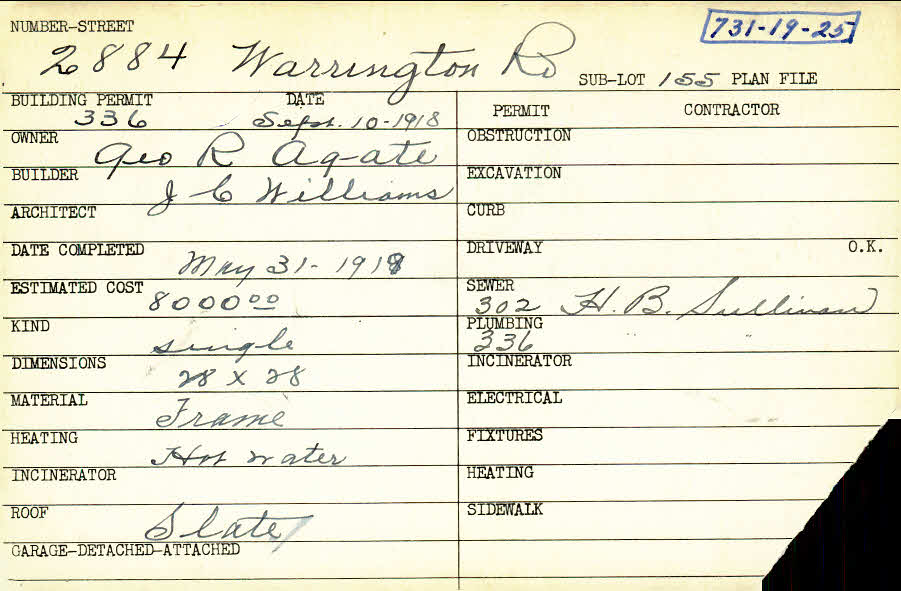 NUMBER-STREET
731-19-25
2884 Warrington Rd
SUB-LOT 155 PLAN FILE
BUILDING PERMIT DATE
336 Sept. 10-1918
OWNER Geo R Agate
BUILDER J C Williams
ARCHITECT
DATE COMPLETED May 31-1919
ESTIMATED COST 8000 00
KIND single
DIMENSIONS 28 X 28
MATERIAL Frame
HEATING Hot water
INCINERATOR
ROOF Slate
GARAGE-DETACHED-ATTACHED
PERMIT CONTRACTOR
OBSTRUCTION
EXCAVATION
CURB
DRIVEWAY O.K.
SEWER
302 H. B. Sullivan
PLUMBING
336 "
INCINERATOR
ELECTRICAL
FIXTURES
HEATING
SIDEWALK